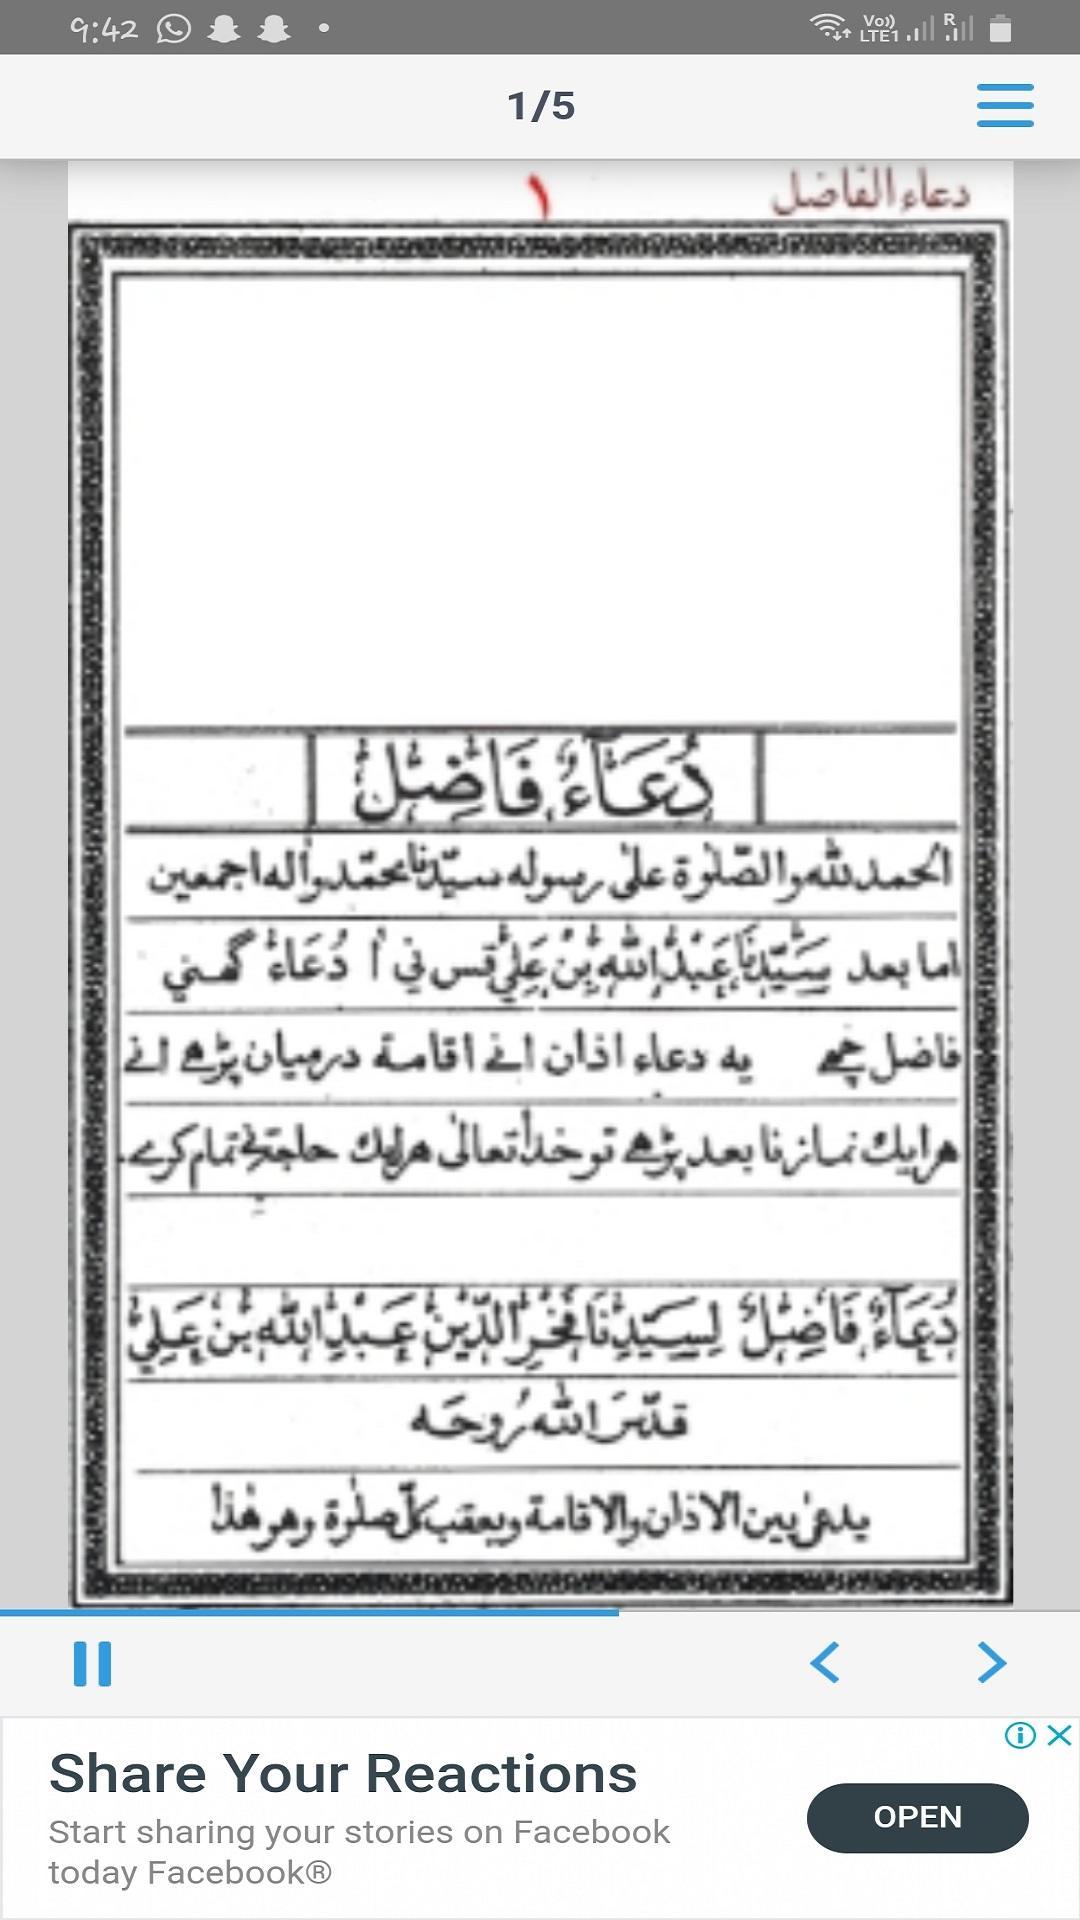 9:42
Vo))
LTE1
R
1/5
دعاء الفاضل
١
دُعَآءُ فَاضِلْ
الحمد لله والصّلوٰة علىٰ رسوله سيّدنا محمّد واٰله اجمعين
اما بعد سَيِّدنَا عَبْدُ اللهِ بِنْ عَلِيْ قس ني اْ دُعَاءْ گهني
فاضل چھے يه دعاء اذان انے اقامة درميان پڑھے انے
هرايك نماز نا بعد پڑھے تو خداْ تعالىٰ هرايك حاجتنے تمام كرے.
دُعَآءُ فَاضِلْ لِسَيِّدِنَا فَخْرِ الدِّيْنْ عَبْدِ اللهِ بْنِ عَلِيْ
قدّسَ الله رُوحَه
يدعىٰ بين الاذان والاقامة وبعقب كلّ صلوٰة وهو هٰذا
Share Your Reactions
Start sharing your stories on Facebook
today Facebook®
OPEN